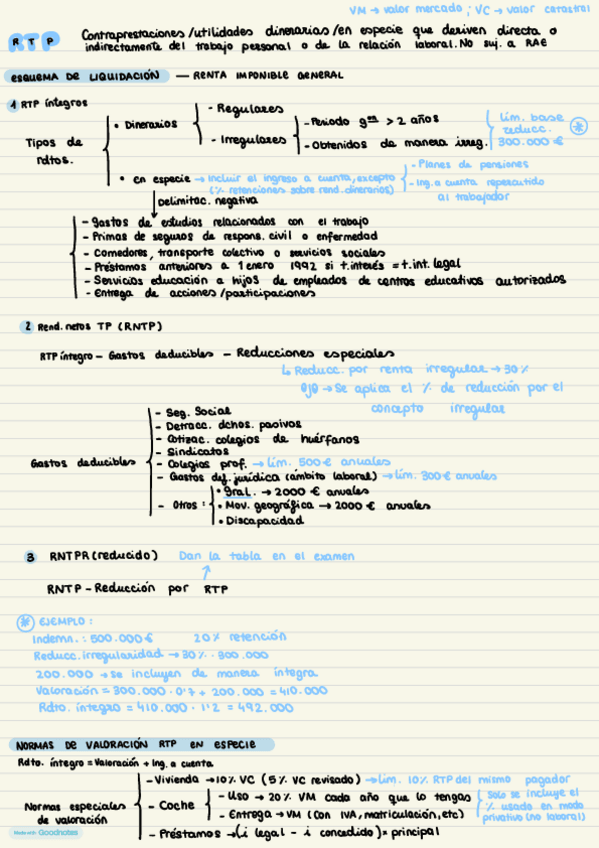 VM → valor mercado; VC → valor catastral
RTP Contraprestaciones/utilidades dinerarias/en especie que deriven directa o
indirectamente del trabajo personal o de la relación laboral. No suj. a RAE
ESQUEMA DE LIQUIDACIÓN — RENTA IMPONIBLE GENERAL
1 RTP íntegros
Tipos de rdtos.
• Dinerarios
- Regulares
- Irregulares
- Periodo gen > 2 años
- Obtenidos de manera irreg.
Lím. base
reducc.
300.000 €
*
• En especie → Incluir el ingreso a cuenta, excepto
(% retenciones sobre rend. dinerarios)
- Planes de pensiones
- Ing. a cuenta repercutido
al trabajador
Delimitac. negativa
- Gastos de estudios relacionados con el trabajo
- Primas de seguros de respons. civil o enfermedad
- Comedores, transporte colectivo o servicios sociales
- Préstamos anteriores a 1 enero 1992 si t.interés = t.int. legal
- Servicios educación a hijos de empleados de centros educativos autorizados
- Entrega de acciones/participaciones
2 Rend. netos TP (RNTP)
RTP íntegro - Gastos deducibles - Reducciones especiales
↳ Reducc. por renta irregular → 30%
Ojo → Se aplica el % de reducción por el
concepto irregular
Gastos deducibles
- Seg. Social
- Detracc. dchos. pasivos
- Cotizac. colegios de huérfanos
- Sindicatos
- Colegios prof. → Lím. 500 € anuales
- Gastos def. jurídica (ámbito laboral) → Lím. 300 € anuales
- Otros:
• Gral. → 2000 € anuales
• Mov. geográfica → 2000 € anuales
• Discapacidad
3 RNTPR (reducido) Dan la tabla en el examen
RNTP - Reducción por RTP
* EJEMPLO:
Indemn.: 500.000 € 20% retención
Reducc. irregularidad → 30% · 300.000
200.000 → se incluyen de manera íntegra
Valoración = 300.000 · 0'7 + 200.000 = 410.000
Rdto. íntegro = 410.000 · 1'2 = 492.000
NORMAS DE VALORACIÓN RTP EN ESPECIE
Rdto. íntegro = Valoración + Ing. a cuenta
Normas especiales
de valoración
- Vivienda → 10% VC (5% VC revisado) → Lím. 10% RTP del mismo pagador
- Coche
- Uso → 20% VM cada año que lo tengas
- Entrega → VM (con IVA, matriculación, etc)
Solo se incluye el
% usado en modo
privativo (no laboral)
- Préstamos → (i legal - i concedido) × principal
Made with Goodnotes